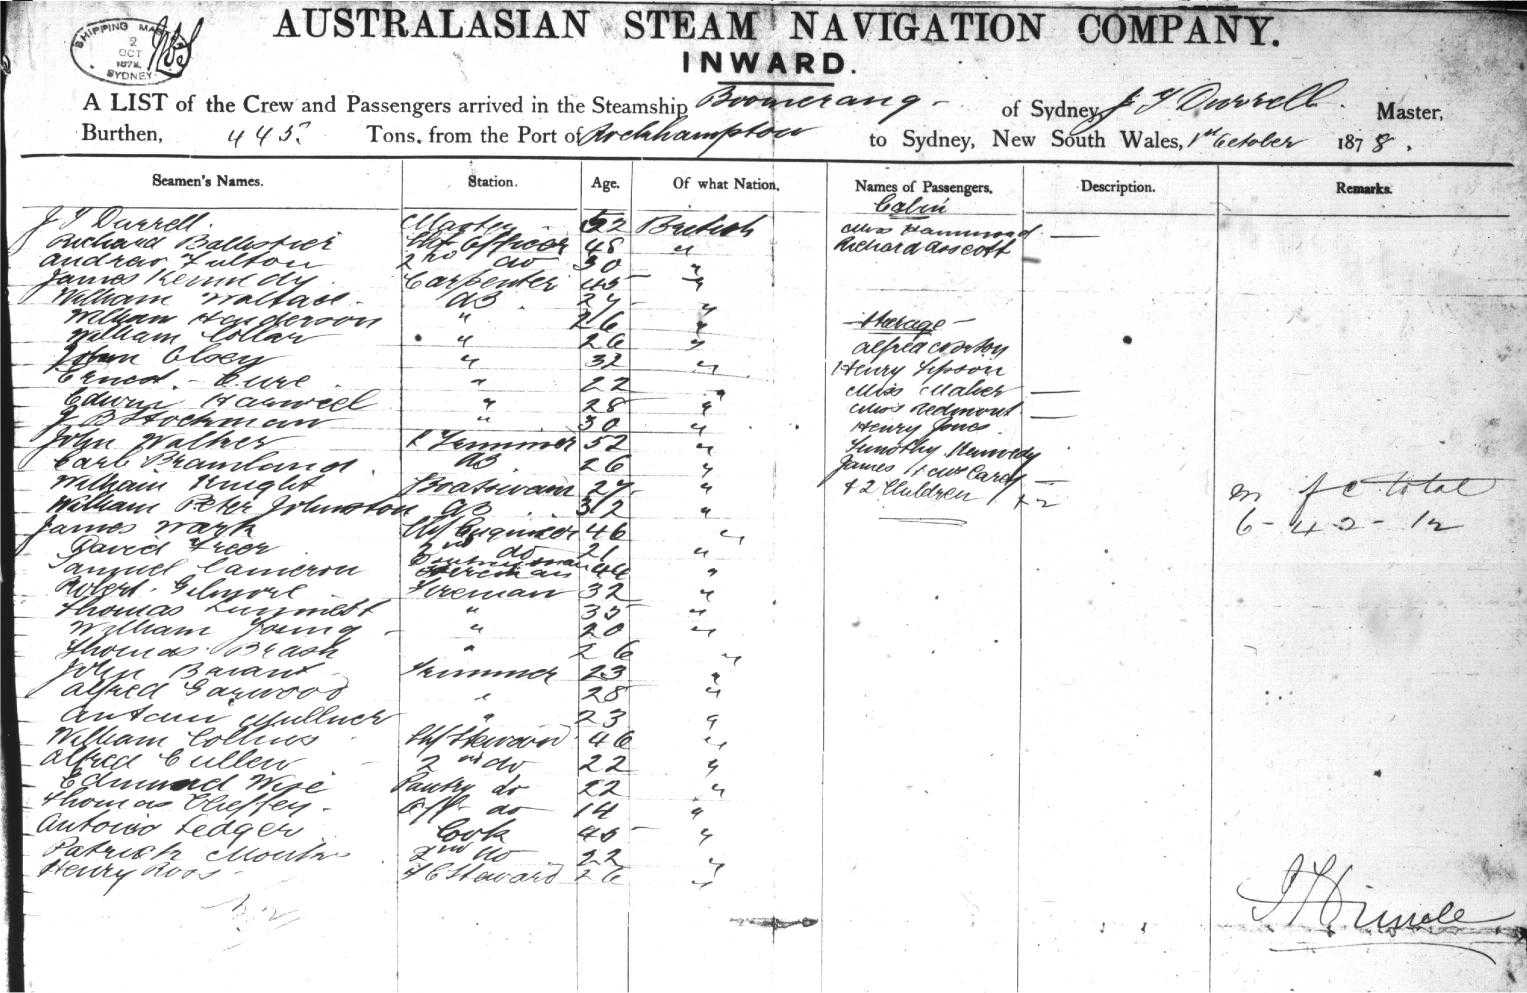 SHIPPING MASTER
2
OCT
1878
SYDNEY
AUSTRALASIAN STEAM NAVIGATION COMPANY.
INWARD.
A LIST of the Crew and Passengers arrived in the Steamship Boomerang - of Sydney, J T Durrell. Master,
Burthen, 445 Tons, from the Port of Rockhampton to Sydney, New South Wales, 1st October 1878.
Seamen's Names. Station. Age. Of what Nation. Names of Passengers. Description. Remarks.
Cabin
J T Durrell Master 52 British Miss Hammond —
Richard Ch Officer 48 " Richard
Andrew Fulton 2nd do 30 "
James Kennedy Carpenter 45 "
William Wallace AB 27 "
William Henderson " 26 " Steerage
William Collar " 26 " Alfred
John Olsey " 32 " Henry
Ernest " 22 " Miss Maher —
Edwin " 28 " Redmont —
J B Stockman " 30 " Henry Jones
John Walker Trimmer 52 " Timothy Kennedy
Carl AB 26 " James + Mrs Carey —
William Knight Boatswain 27 " + 2 Children + 2
William Peter Johnston AB 32 "
James Wark Ch Engineer 46 "
David Freer 2nd do 21 "
Samuel Cameron 44 "
Robert Gilmore Fireman 32 "
Thomas " 35 "
William Young " 20 "
Thomas Brash " 26 "
John Trimmer 23 "
Alfred Garwood " 28 "
" 23 "
William Collins Ch Steward 46 "
Alfred Cullen 2nd do 22 "
Edmund Wise Pantry do 22 "
Thomas do 14 "
Antonio Ledger Cook 45 "
Patrick 2nd do 22 "
Henry Roos F C Steward 26 "
m f c total
6 - 4 - 2 - 12